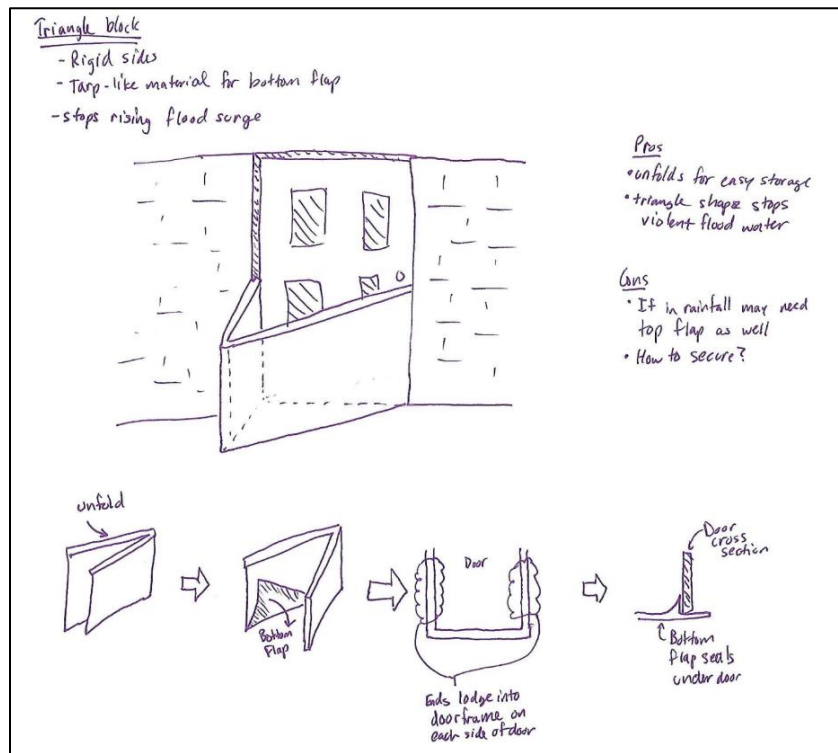 Triangle block
- Rigid sides
- Tarp-like material for bottom flap
- stops rising flood surge
Pros
• unfolds for easy storage
• triangle shape stops
violent flood water
Cons
• If in rainfall may need
top flap as well
• How to secure?
unfold
Bottom
Flap
Door
Ends lodge into
doorframe on
each side of door
Door
cross
section
Bottom
flap seals
under door